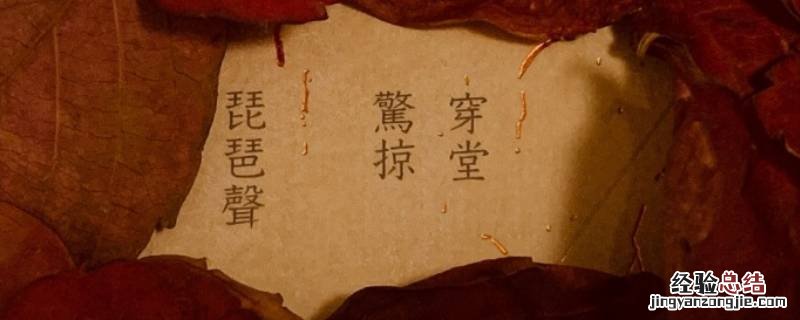 穿堂
驚掠
琵琶聲
经验总结
jingyanzongjie.com